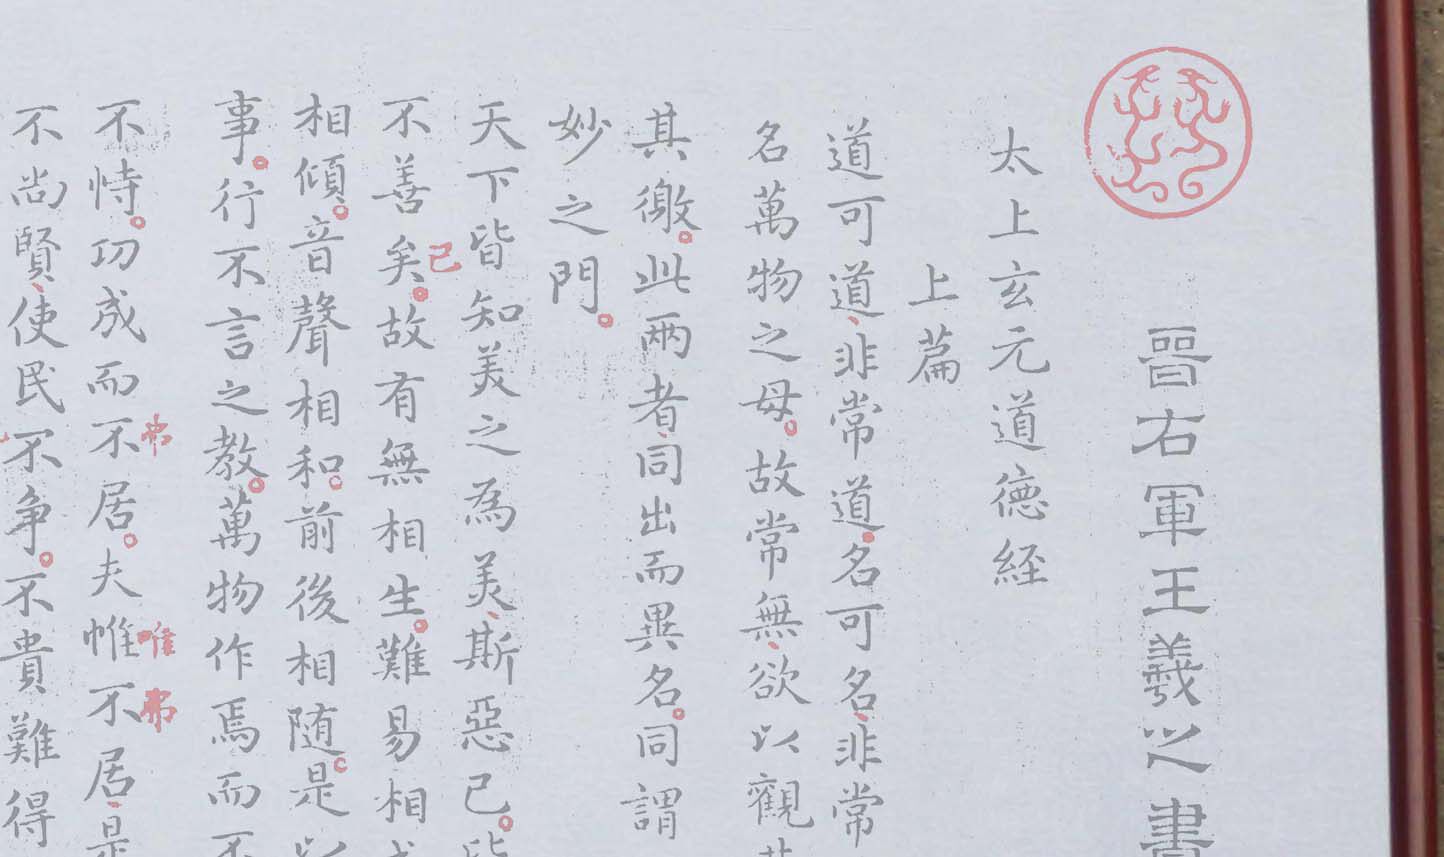 晉右軍王羲之書
太上玄元道德経
上篇
道可道、非常道。名可名、非常
名萬物之母。故常無、欲以觀其
其徼。此兩者、同出而異名。同謂
妙之門。
天下皆知美之為美、斯惡已。皆
不善矣。已故有無相生。難易相成
相傾。音聲相和。前後相随。是以
事。行不言之教。萬物作焉而不
不恃。功成而不弗居。夫惟唯不弗居、是
不尚賢、使民不争。不貴難得